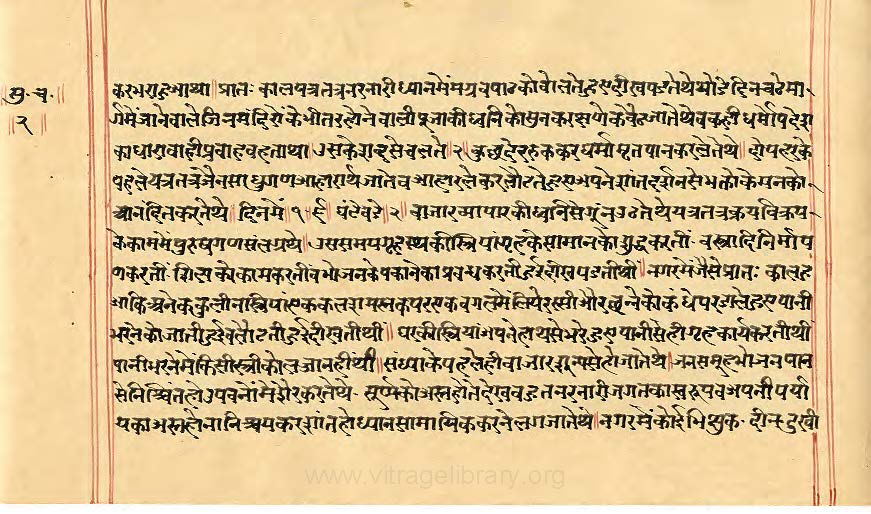 प्र. च.
॥ २ ॥
प्रातः काल यत्र तत्र नर नारी ध्यान में मग्न व पाठ को बोलते हुए दीख पडते थे थोडे दिन चढे मा-
र्ग में जाने वाले जिन मंदिरों के भीतर होने वाली पूजा की ध्वनि को सुनकर क्षणेक बैठ जाते थे व कहीं धर्मोपदेश
का धारावाही प्रवाह बहता था उसके शब्द से चलते २ कुछ देर रुककर धर्मामृत पान कर लेते थे ॥ दो पहर के
पहले यत्र तत्र जैन साधुगण आहारार्थ जाते व आहार लेकर लौटते हुए अपने शांत दर्शन से भक्तों के मन को
आनंदित करते थे ॥ दिन में ॥ बडे २ बाजार व्यापार की ध्वनि से गूंज उठते थे यत्र तत्र क्रय विक्रय-
के काम में पुरुषगण संलग्न थे ॥ उस समय गृहस्थ की स्त्रियां गृह के सामान को शुद्ध करतीं - वस्त्रादि निर्माप
ण करतीं - शिल्प का कार्य करतीं व भोजन के पकाने का प्रबन्ध करतीं हुई दीख पडती थीं ॥ नगर में जैसे प्रातः काल ह
अनेक कुलीन स्त्रियां एक कलश मस्तक पर एक बगल में लिये रस्सी और छन्ने को कंधे पर डाले हुए पानी
भरने को जाती हुई व लौटती हुई दीखती थीं ॥ घर की स्त्रियां अपने हाथ से भरे हुए पानी से ही गृह कार्य करती थीं
पानी भरने में किसी स्त्री को लज्जा नहीं थी ॥ संध्या के पहले ही बाजार शून्य से हो जाते थे ॥ जन समूह भोजन पान
से निश्चिंत हो उपवनों में दौर करते थे - सूर्य को अस्त होते देख बहुत नर नारी जगत का स्वरूप व अपनी पर्या
य का अस्त होना निश्चय कर शांत हो ध्यान सामायिक करने लग जाते थे ॥ नगर में कोई भिक्षुक - दीन - दुखी
www.vitragelibrary.org